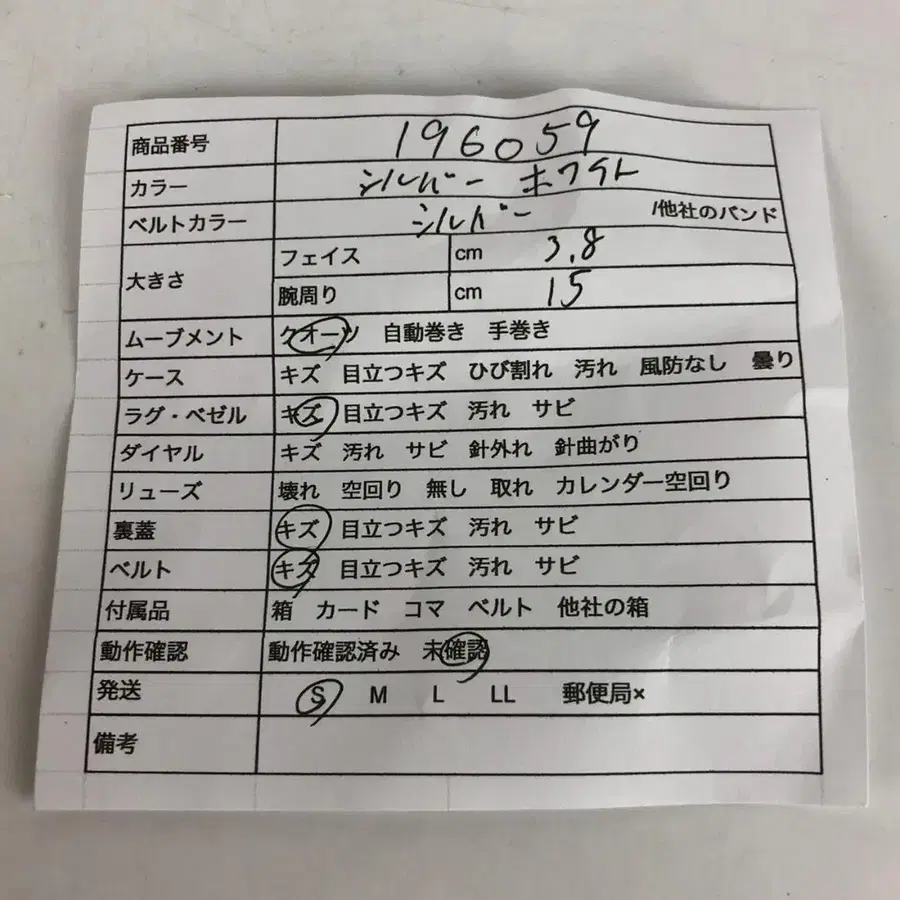 商品番号 196059
カラー シルバー ホワイト
ベルトカラー シルバー /他社のバンド
大きさ フェイス cm 3.8
腕周り cm 15
ムーブメント クオーツ 自動巻き 手巻き
ケース キズ 目立つキズ ひび割れ 汚れ 風防なし 曇り
ラグ・ベゼル キズ 目立つキズ 汚れ サビ
ダイヤル キズ 汚れ サビ 針外れ 針曲がり
リューズ 壊れ 空回り 無し 取れ カレンダー空回り
裏蓋 キズ 目立つキズ 汚れ サビ
ベルト キズ 目立つキズ 汚れ サビ
付属品 箱 カード コマ ベルト 他社の箱
動作確認 動作確認済み 未確認
発送 S M L LL 郵便局×
備考